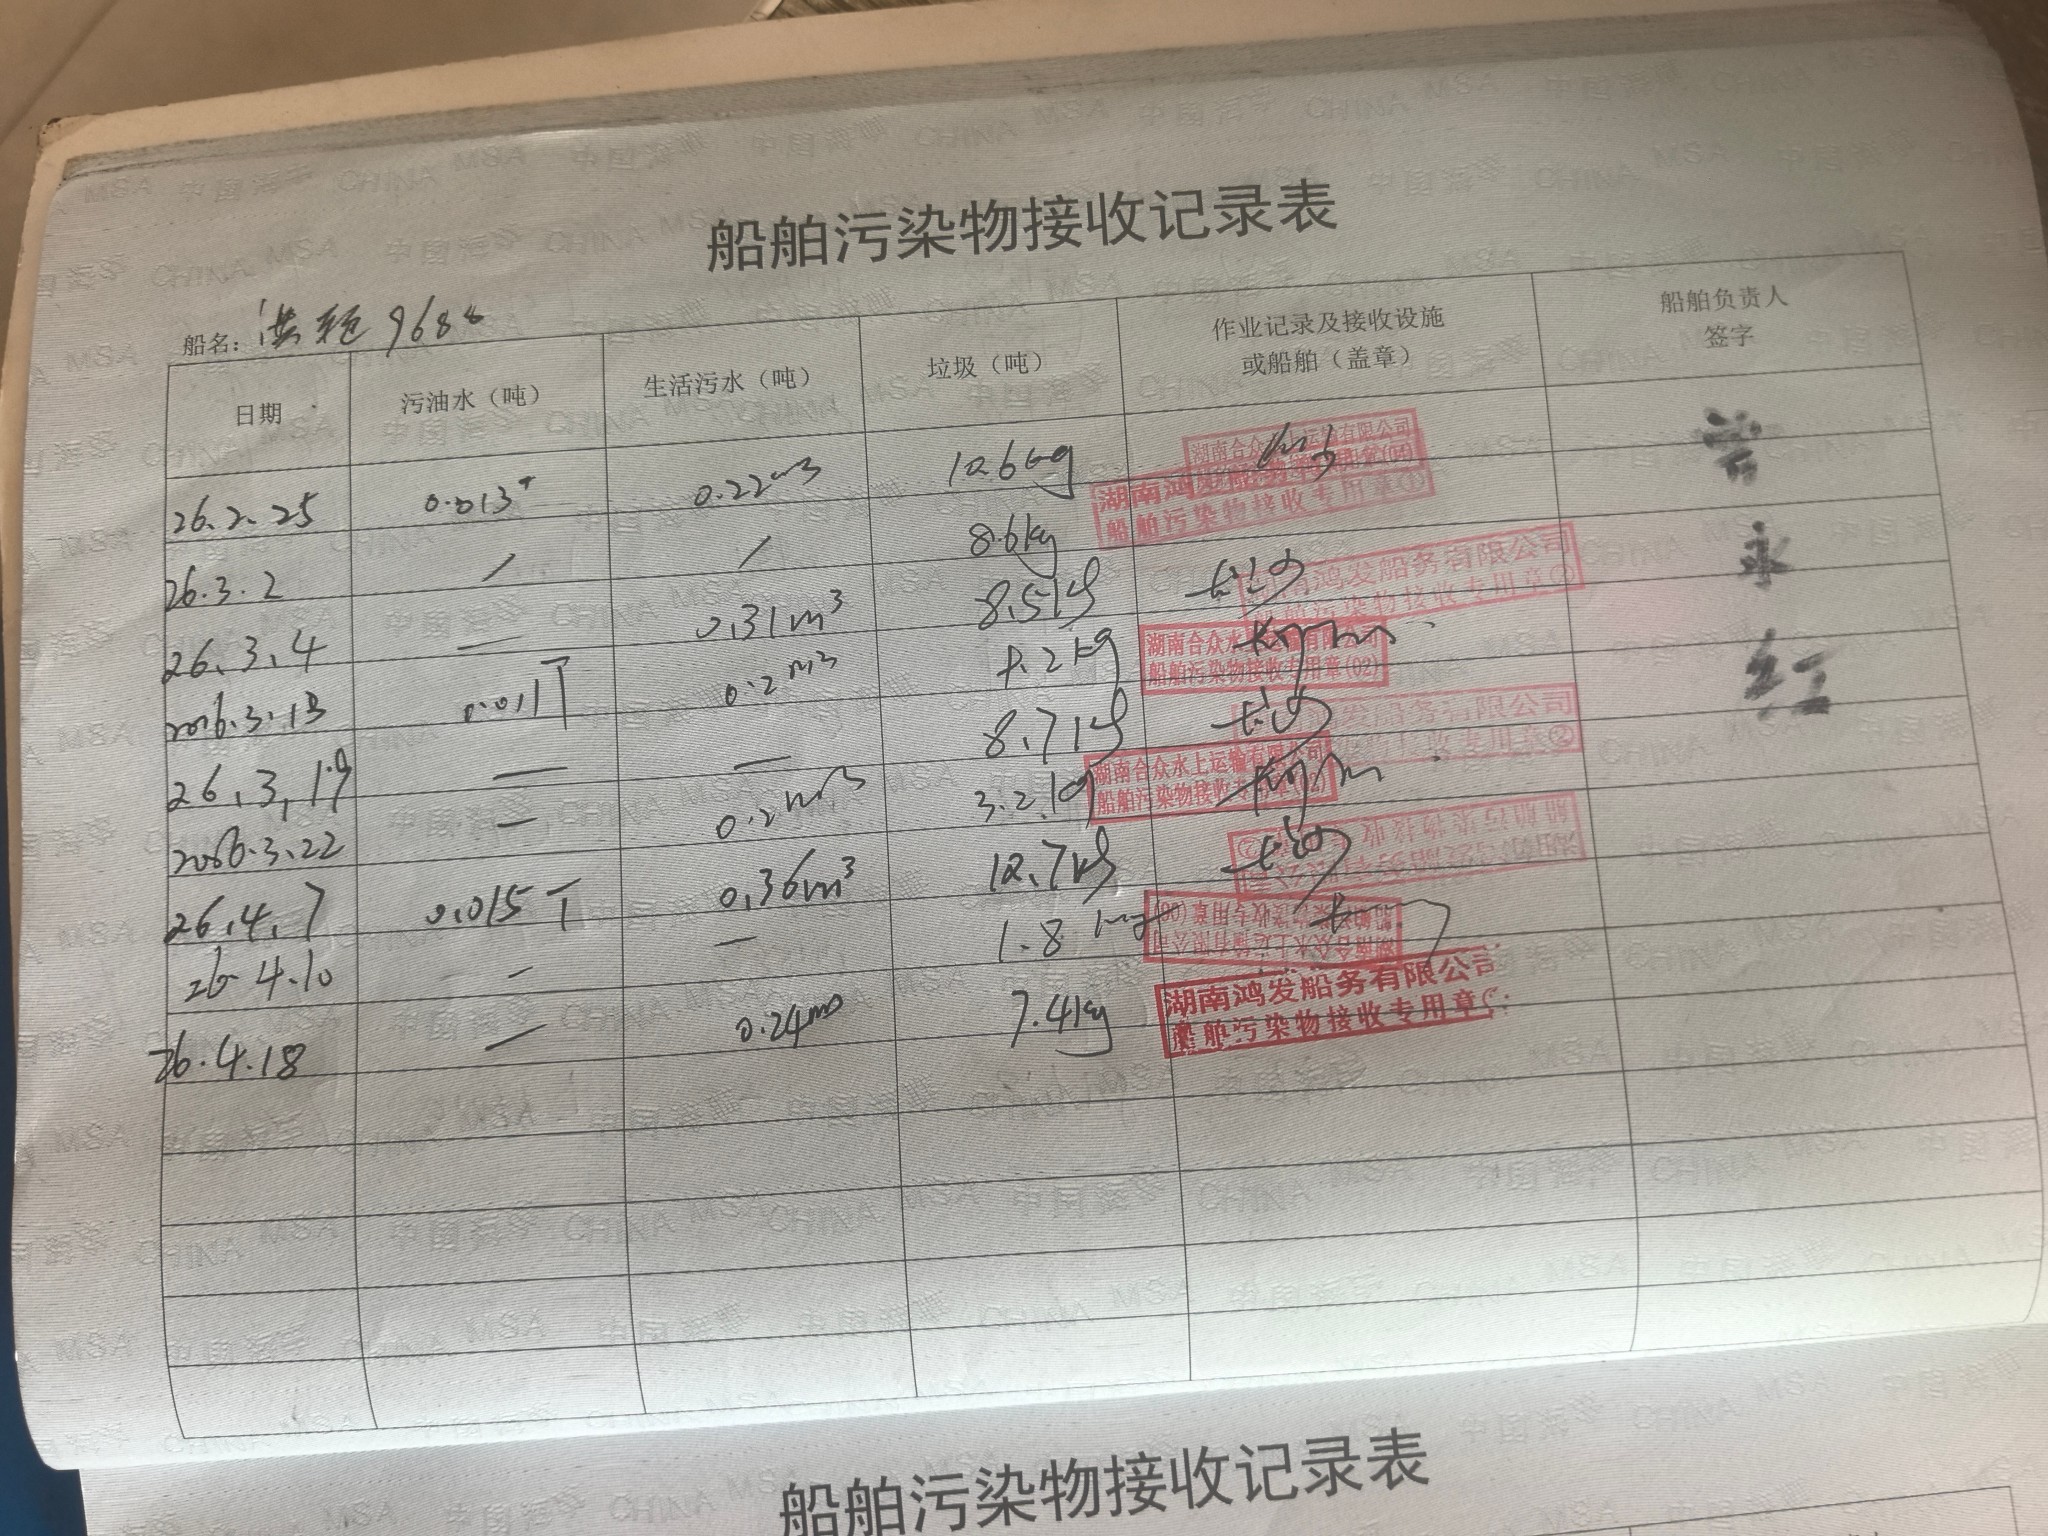 船舶污染物接收记录表
船名: 9688
日期 污油水（吨） 生活污水（吨） 垃圾（吨） 作业记录及接收设施或船舶（盖章） 船舶负责人签字
26.2.25 0.013T 0.22m3 10.6kg
湖南合众水上运输有限公司
湖南鸿发船务有限公司
船舶污染物接收专用章①
26.3.2 / / 8.6kg
26.3.4 — 0.31m³ 8.5kg 长沙
湖南鸿发船务有限公司
船舶污染物接收专用章②
2026.3.13 0.011T 0.2m3 kg
湖南合众水上运输有限公司
船舶污染物接收专用章(02)
26.3.19 — — 8.7kg 长沙
鸿发船务有限公司
污染物接收专用章②
2026.3.22 — 0.2m3 3.2kg
湖南合众水上运输有限公司
船舶污染物接收专用章(02)
26.4.7 0.015T 0.36m³ 12.7kg 长沙
26.4.10 — — 1.8kg
26.4.18 — 0.24m3 7.4kg
湖南鸿发船务有限公司
船舶污染物接收专用章
永红
船舶污染物接收记录表
中国海事 CHINA MSA